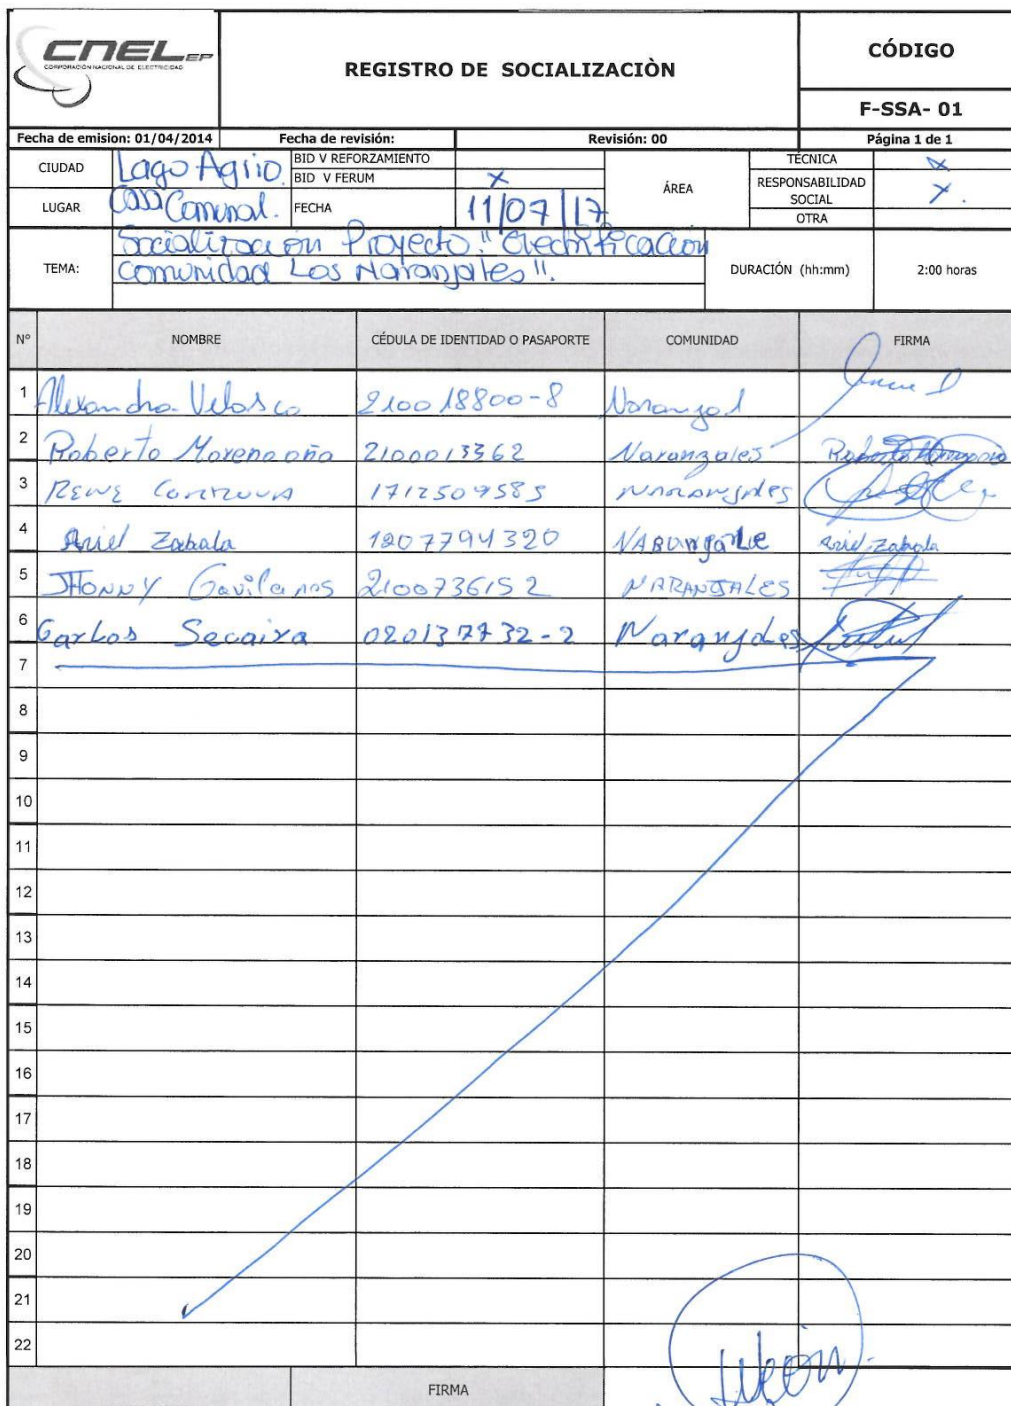 CNEL EP
CORPORACIÓN NACIONAL DE ELECTRICIDAD
REGISTRO DE SOCIALIZACIÒN
CÓDIGO
F-SSA- 01
Fecha de emision: 01/04/2014 Fecha de revisión: Revisión: 00 Página 1 de 1
CIUDAD Lago Agrio. BID V REFORZAMIENTO
BID V FERUM X
ÁREA
TÉCNICA X
RESPONSABILIDAD SOCIAL X.
OTRA
LUGAR Casa Comunal. FECHA 11/07/17
TEMA: Socialización Proyecto: "Electrificación
Comunidad Los Naranjales".
DURACIÓN (hh:mm) 2:00 horas
Nº NOMBRE CÉDULA DE IDENTIDAD O PASAPORTE COMUNIDAD FIRMA
1 Alexandra Velasco 210018800-8 Naranjal
2 Roberto 2100013362 Naranzales Roberto
3 RENE 1712509585 NARANJALES
4 Ariel Zabala 1207794320 Ariel Zabala
5 JHONNY Gavilanes 2100736152 NARANJALES
6 Carlos Secaira 020137732-2 Naranjales
7
8
9
10
11
12
13
14
15
16
17
18
19
20
21
22
FIRMA